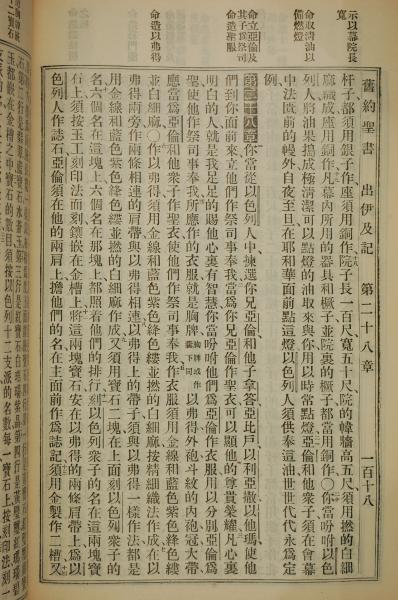 舊約聖書 出伊及記 第二十八章 一百十八
示以幕院長寬
命取清油以備燃燈
命立亞倫及其子爲祭司
命造聖服
命造以弗得
杆子都須用銀子作座須用銅作院子長一百尺寬五十尺院的幃牆高五尺須用撚的白細
麻織成座用銅作凡幕內所用的器具和橛子並院裏的橛子都當用銅作〇你當吩咐以色
列人將油果搗成極清潔可以點燈的油取來與你用以時常點燈亞倫和他衆子須在會幕
中法匱前的幔外自夜至旦在耶和華面前點這燈以色列人須供奉這油世世代代永爲定
例
第二十八章你當從以色列人中揀選你兄亞倫和他子拿答亞比戶以利亞撒以他瑪使他
們到你面前來立他們作祭司事奉我當爲你兄亞倫作聖衣可以顯他的尊貴榮耀凡心裏
明白的人就是我足足的賜他心裏有智慧你當吩咐他們爲亞倫作衣服用以分別亞倫爲
聖使他作祭司事奉我所應作的衣服就是胸牌胸牌或作囊下同以弗得外袍斗紋的內袍冠大帶
應當爲亞倫和他衆子作聖衣使他們作祭司事奉我作衣服須用金線和藍色紫色絳色縷
並白細麻〇作以弗得須用金線和藍色紫色絳色縷並撚的白細麻按精細織法作成在以
弗得兩旁作兩條相連的肩帶與以弗得相連以弗得上的帶子須與以弗得一樣作法都是
用金線和藍色紫色絳色縷並撚的白細麻作成又須用寶石二塊在上面刻以色列衆子的
名六個名在這塊上六個名在那塊上都照着他們的排行刻以色列衆子的名在這兩塊寶
石上須按玉工刻印法而刻鑲嵌在金槽上將這兩塊寶石安在以弗得的兩條肩帶上爲以
色列人作誌石亞倫須在他的兩肩上擔他們的名在主面前作爲誌記須用金製作二槽又
玉都嵌在金槽之中寶石的數目須按以色列十二支派的名數每一寶石上按刻印法刻一